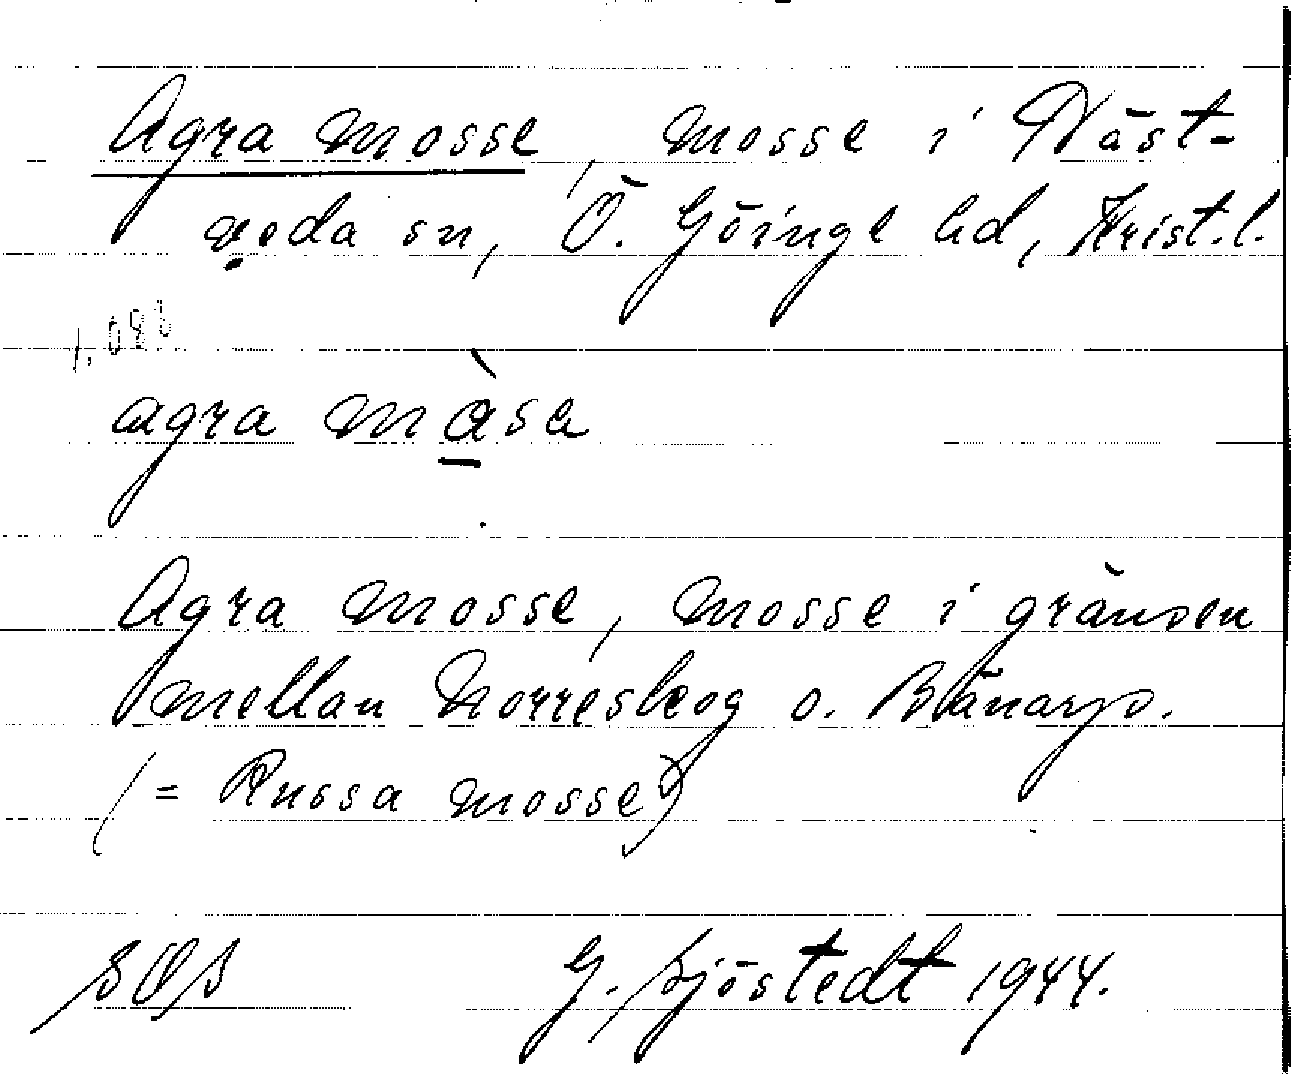 Agra mosse, mosse i Näst-
veda sn, Ö. Göinge hd, Krist.l.
agra màsa
Agra mosse, mosse i gränsen
mellan Norreskog o. Blänarp.
(= Russa mosse)
SOS G. Sjöstedt 1944.